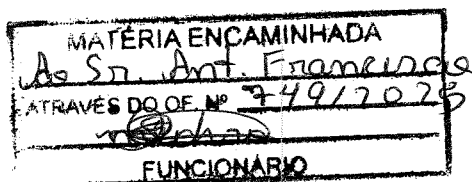 MATÉRIA ENCAMINHADA
Ao Sr. Ant. Francisco
ATRAVÉS DO OF. Nº 749/2025
FUNCIONÁRIO